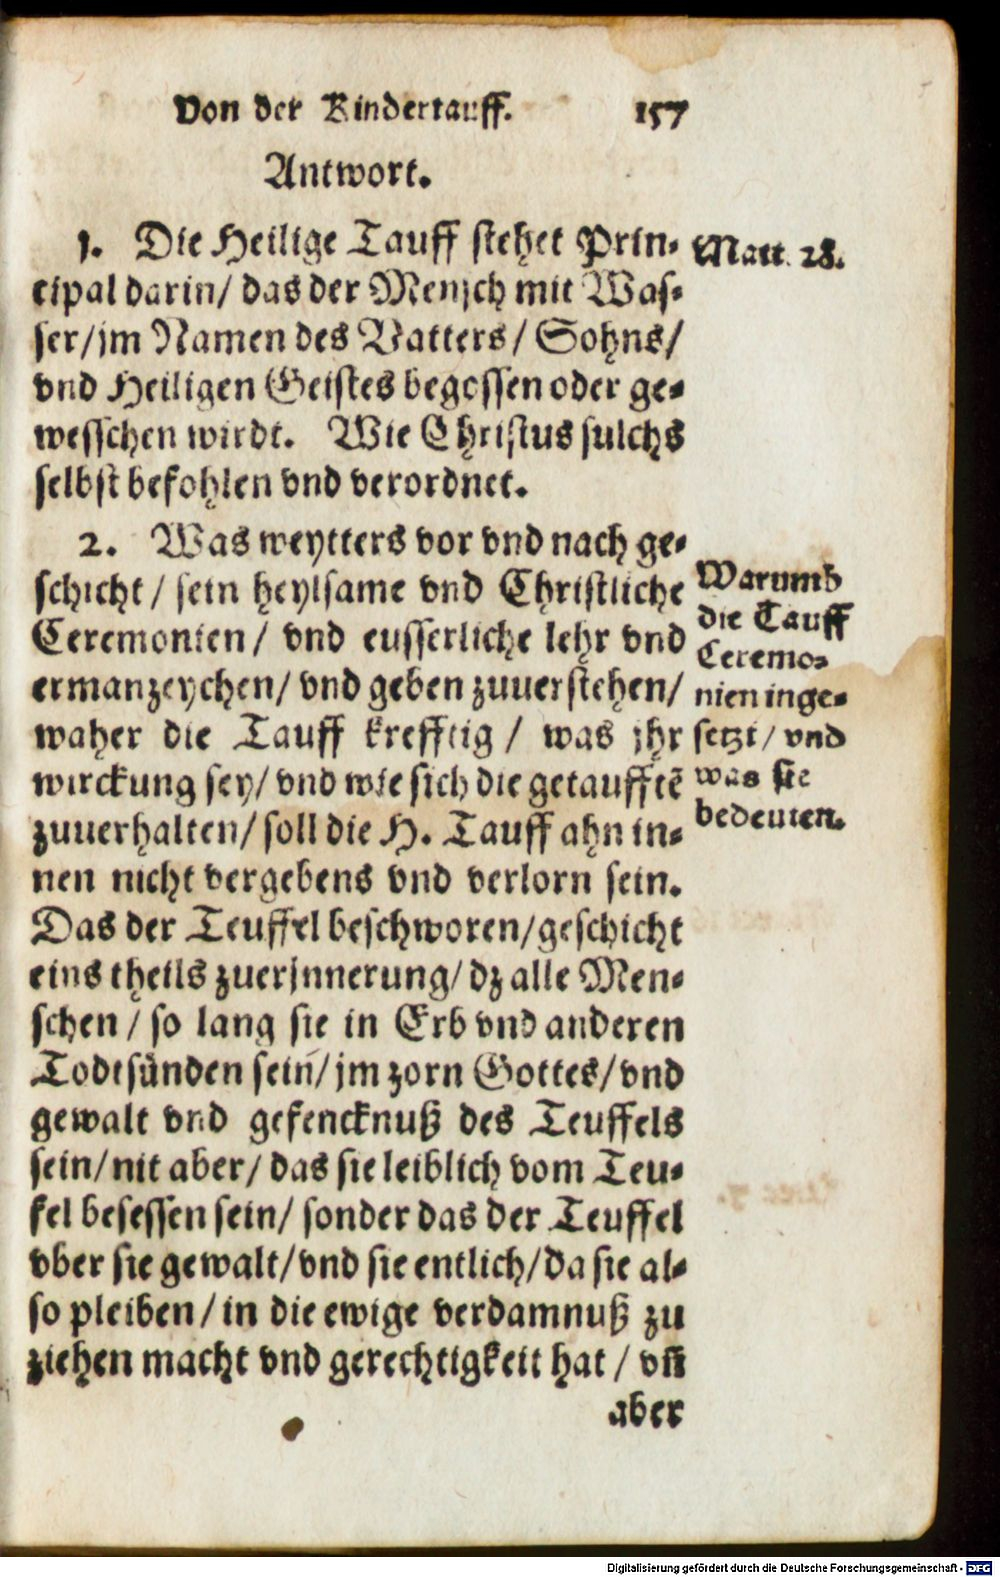 Von der Kindertauff. 157
Antwort.
1. Die Heilige Tauff stehet Prin-
cipal darin/ das der Mensch mit Was-
ser/jm Namen des Vatters/ Sohns/
vnd Heiligen Geistes begossen oder ge-
wesschen wirdt. Wie Christus sulchs
selbst befohlen vnd verordnet.
Matt. 28.
2. Was weytters vor vnd nach ge-
schicht/ sein heylsame vnd Christliche
Ceremonien/ vnd eusserliche lehr vnd
ermanzeychen/ vnd geben zuuerstehen/
waher die Tauff krefftig/ was jhr
wirckung sey/ vnd wie sich die getaufftē
zuuerhalten/ soll die H. Tauff ahn in-
nen nicht vergebens vnd verlorn sein.
Das der Teuffel beschworen/geschicht
eins theils zuerjnnerung/ dz alle Men-
schen/ so lang sie in Erb vnd anderen
Todtsünden sein/ jm zorn Gottes/ vnd
gewalt vnd gefencknuß des Teuffels
sein/ nit aber/ das sie leiblich vom Teu-
fel besessen sein/ sonder das der Teuffel
vber sie gewalt/vnd sie entlich/da sie al-
so pleiben/ in die ewige verdamnuß zu
ziehen macht vnd gerechtigkeit hat/ vñ
aber
Warumb
die Tauff
Ceremo-
nien inge-
setzt/ vnd
was sie
bedeuten.
Digitalisierung gefördert durch die Deutsche Forschungsgemeinschaft - DFG